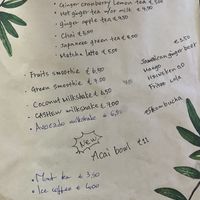 • Ginger cranberry Lemon tea 5.50
• Hot ginger tea w/or milk € 4.50
• ginger apple tea € 4.50
• Chai € 5.50
• Japanese green tea € 5.50
• Matcha latte € 5.50
• Fruits smoothie € 6.50
• Green smoothie € 7.00
• Coconut Milkshake € 6.50
• CASHEW milkshake € 7.00
• Avocado milkshake € 6.50
€ 2.50
Jamaican ginger beer
Mango
Heineken 0.0
Fritz Cola
Kombucha
NEW
Acai bowl €11
• Mint tea € 3.50
• Ice coffee € 4.00